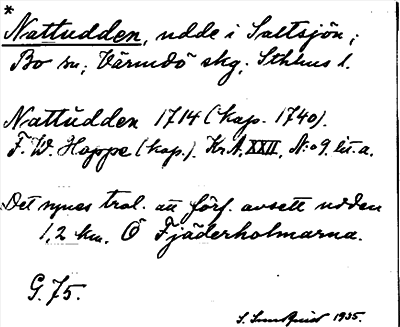 *
Nattudden, udde i Saltsjön,
Bo sn; Värmdö skg; Sthlms l.
Nattudden 1714 (kop. 1740).
F. W. Hoppe (kop.). Kr.A. XXII, N:o 9. lit. a.
Det synes trol. att förf. avsett udden
1,2 km. Ö Fjäderholmarna.
G. 75.
S. 1935.